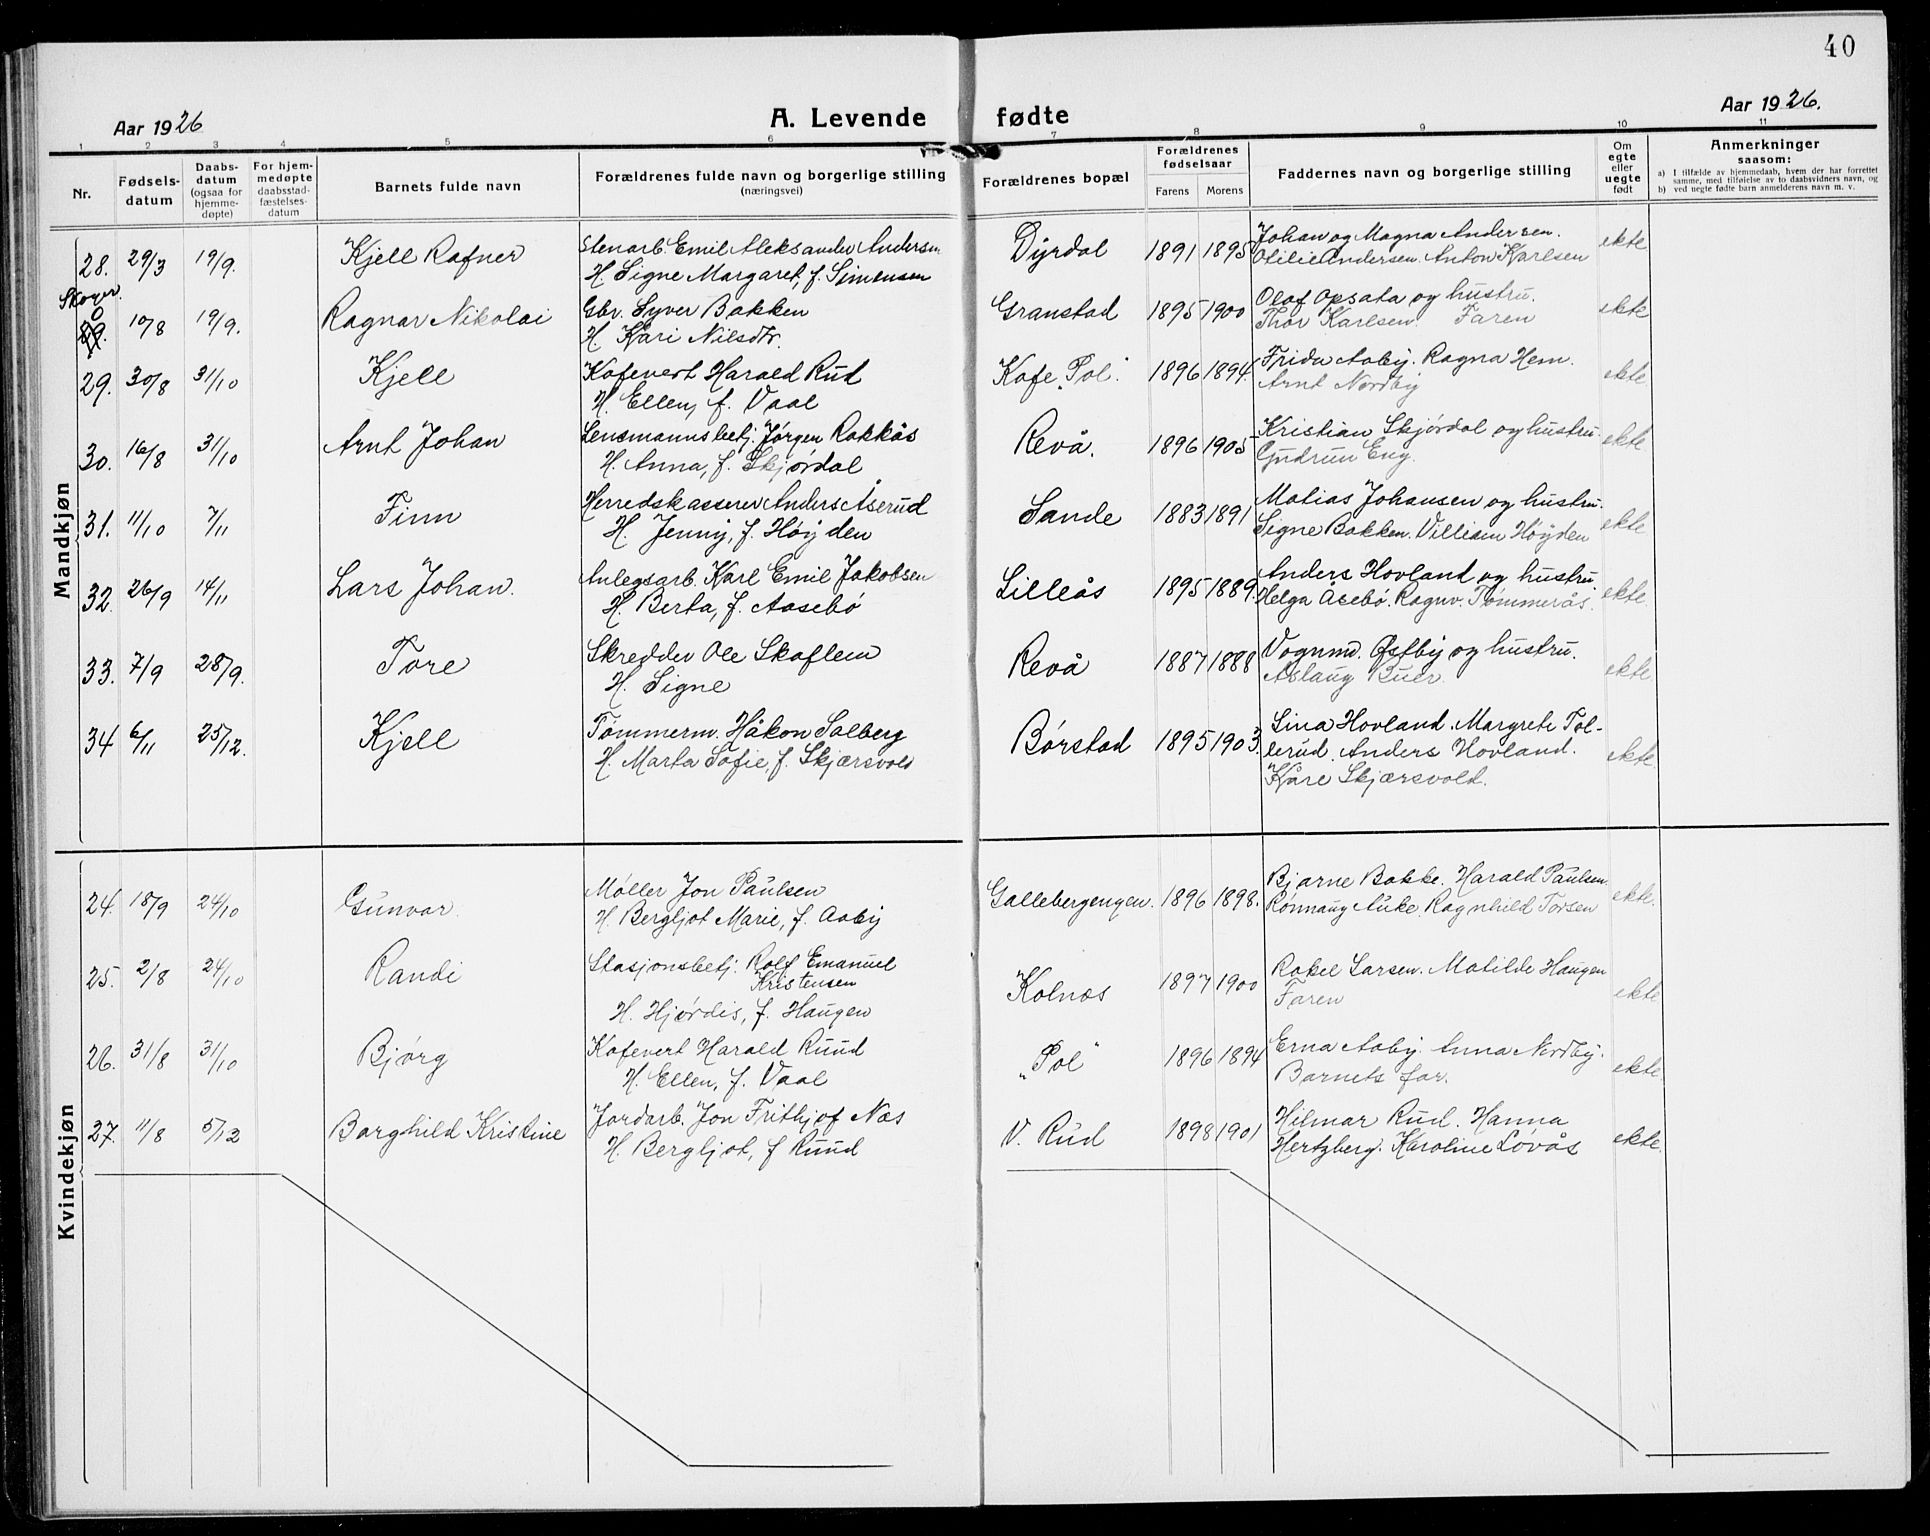 40
Aar 1926
A. Levende
fødte
Aar 1926.
1 2 3 4 5 6 7 8 9 10 11
Nr.
Fødsels-
datum
Daabs-
datum
(ogsaa for
hjemme-
døpte)
For hjem-
medøpte
daabsstad-
fæstelses-
datum
Barnets fulde navn
Forældrenes fulde navn og borgerlige stilling
(næringsvei)
Forældrenes bopæl
Forældrenes
fødselsaar
Farens Morens
Faddernes navn og borgerlige stilling
Om
egte
eller
uegte
født
Anmerkninger
saasom:
a) I tilfælde av hjemmedaab, hvem der har forrettet
samme, med tilføielse av to daabsvidners navn, og
b) ved uegte fødte barn anmelderens navn m. v.
Mandkjøn
28. 29/3 19/9. Kjell Rafner Stenarb. Emil Aleksander Andersen
H. Signe Margaret, f. Simensen
Dyrdal 1891 1895 Johan og Magna Andersen.
Otilie Andersen. Anton Karlsen
ekte
Skoger.
0
29. 10/8 19/9. Ragnar Nikolai Gbr. Syver Bakken
H. Kari Nilsdtr.
Granstad 1895 1900 Olaf Opsata og hustru.
Thor Karlsen. Faren
ekte
29. 30/8 31/10 Kjell Kafevert Harald Rud
H. Ellen, f. Vaal
Kafe „Pol". 1896 1894. Frida Aaby. Ragna Hem.
Arnt Nordby
ekte
30. 16/8 31/10 Arnt Johan Lensmannsbetj. Jørgen Rakkås
H. Anna, f. Skjørdal
Revå. 1896 1905 Kristian Skjørdal og hustru.
Gudrun Eng.
ekte
31. 11/10 7/11 Finn Herredskasserer Anders Åserud
H. Jenny, f. Høyden
Sande 1883 1891 Matias Johansen og hustru.
Signe Bakken. Villiam Høyden
ekte
32. 26/9 14/11 Lars Johan. Anlegsarb. Karl Emil Jakobsen
H. Berta, f. Aasebø
Lilleås 1895 1889. Anders Hovland og hustru
Helga Åsebø. Ragnv. Tømmerås.
ekte
33. 7/9 28/9. Tore Skredder Ole Skaflem
H. Signe
Revå 1887 1888 Vognmd. Østby og hustru.
Aslaug Buer.
ekte
34 6/11 25/12. Kjell Tømmerm. Håkon Solberg
H. Marta Sofie, f. Skjærsvold
Børstad 1895 1903. Lina Hovland. Margrete Tol-
lerud. Anders Hovland.
Kåre Skjærsvold.
ekte.
Kvindekjøn
24. 18/9 24/10 Gunvor. Møller Jon Paulsen
H. Bergljot Marie, f. Aaby
Gallebergengen. 1896 1898. Bjarne Bakke. Harald Paulsen.
Rønnaug Auke. Ragnhild Torsen
ekte.
25. 2/8 24/10 Randi Stasjonsbetj. Rolf Emanuel
Kristensen
H. Hjørdis, f. Haugen
Kolnes 1897 1900 Rakel Larsen. Matilde Haugen
Faren
ekte
26. 31/8 31/10 Bjørg Kafevert Harald Ruud
H. Ellen, f. Vaal
„Pol" 1896 1894 Erna Aaby. Anna Nordby.
Barnets far.
ekte.
27. 11/8 5/12 Borghild Kristine Jordarb. Jon Frithjof Næs
H. Bergljot, f Ruud
V. Rud 1898 1901 Hilmar Rud. Hanna
Hertzberg. Karoline Løvås
ekte.